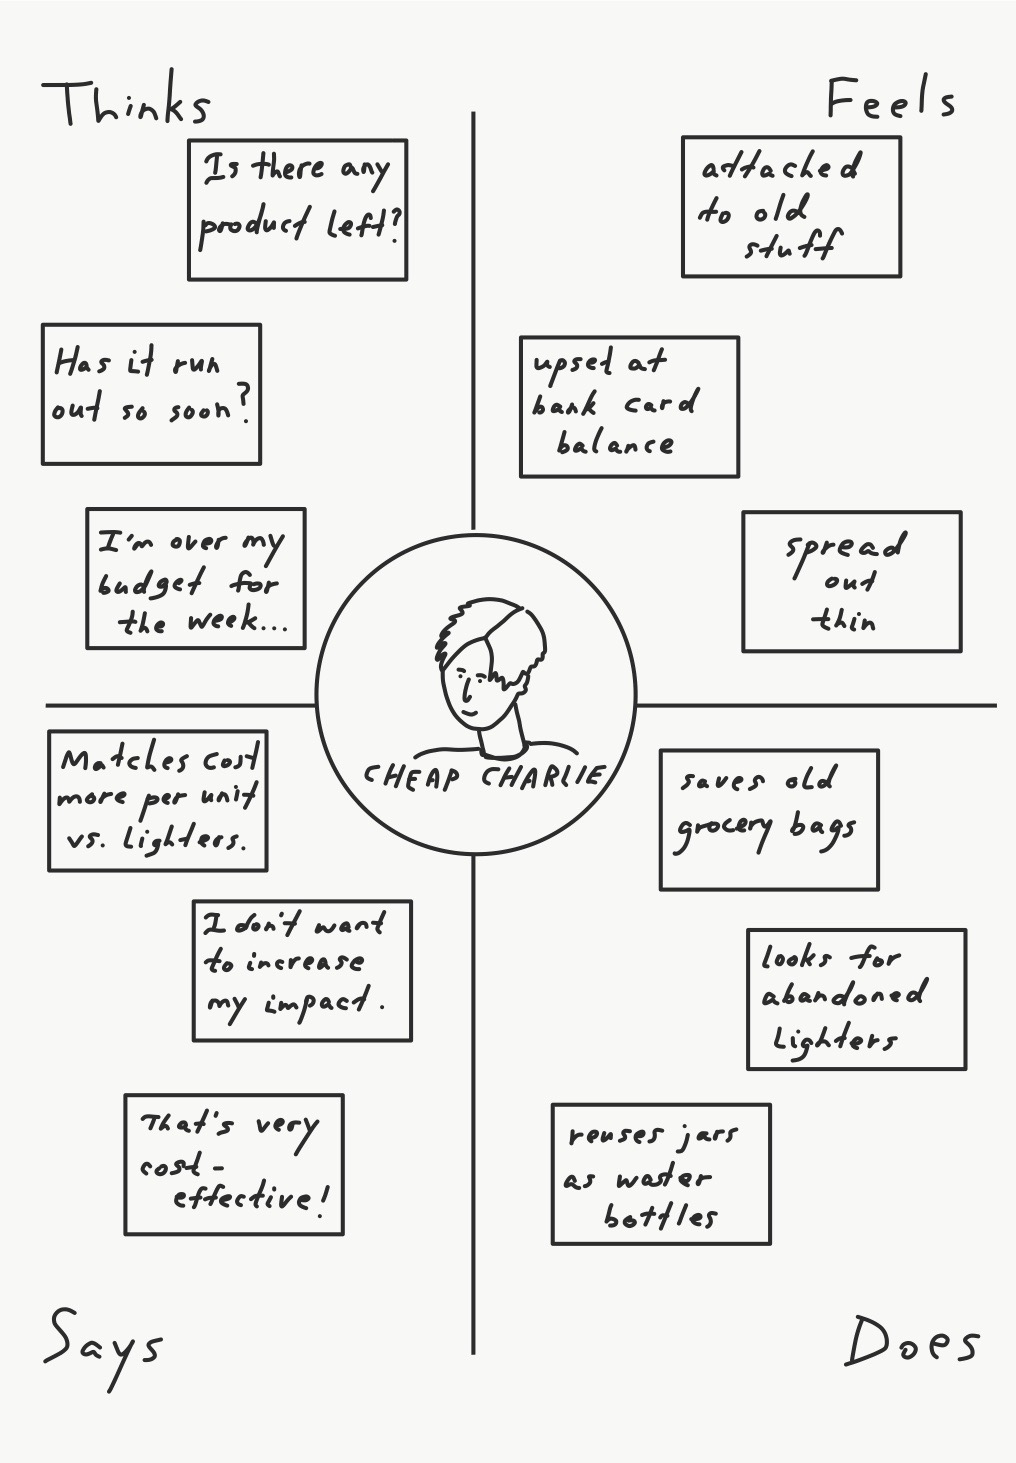 Thinks
Is there any
product left?
Has it run
out so soon?
I'm over my
budget for
the week...
Feels
attached
to old
stuff
upset at
bank card
balance
spread
out
thin
CHEAP CHARLIE
Matches cost
more per unit
vs. lighters.
I don't want
to increase
my impact.
That's very
cost-
effective!
Says
saves old
grocery bags
looks for
abandoned
lighters
reuses jars
as water
bottles
Does